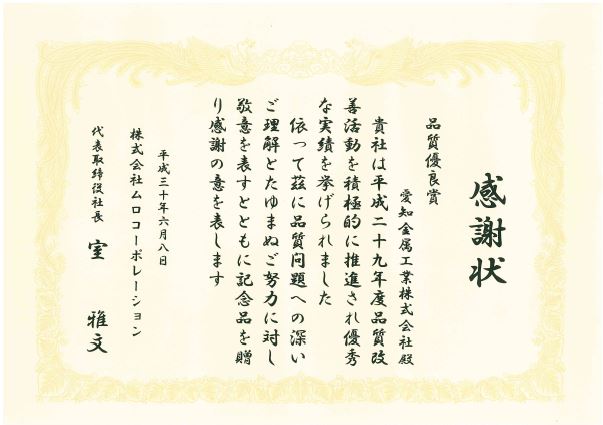 感謝状
品質優良賞
愛知金属工業株式会社殿
貴社は平成二十九年度品質改
善活動を積極的に推進され優秀
な実績を挙げられました
依って茲に品質問題への深い
ご理解とたゆまぬご努力に対し
敬意を表すとともに記念品を贈
り感謝の意を表します
平成三十年六月八日
株式会社ムロコーポレーション
代表取締役社長 室 雅文